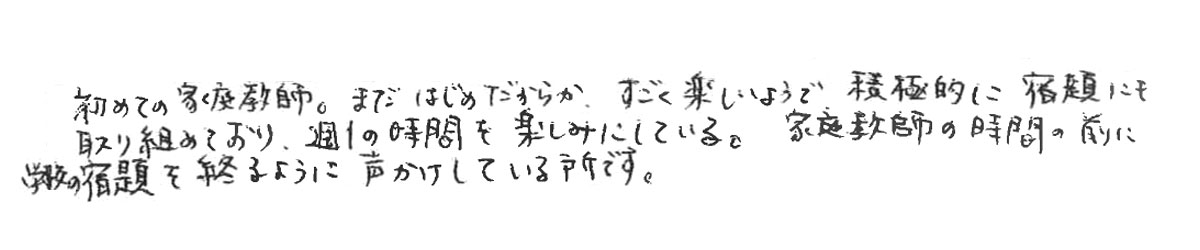 初めての家庭教師。まだはじめだからか、すごく楽しいようで積極的に宿題にも
取り組めており、週1の時間を楽しみにしている。家庭教師の時間の前に
学校の宿題を終るように声かけしている所です。